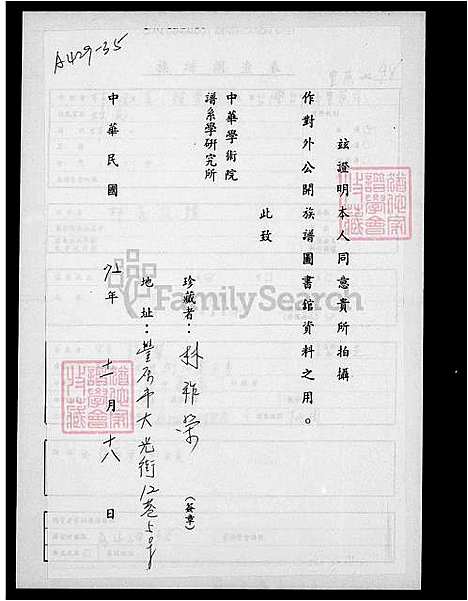 A429-35
茲證明本人同意貴所拍攝
作對外公開族譜圖書館資料之用。
此致
中華學術院
譜系學研究所
珍藏者：林祚榮
(簽章)
地址：豐原市大光街12巷5号
中華民國71年十一月十八日
FamilySearch